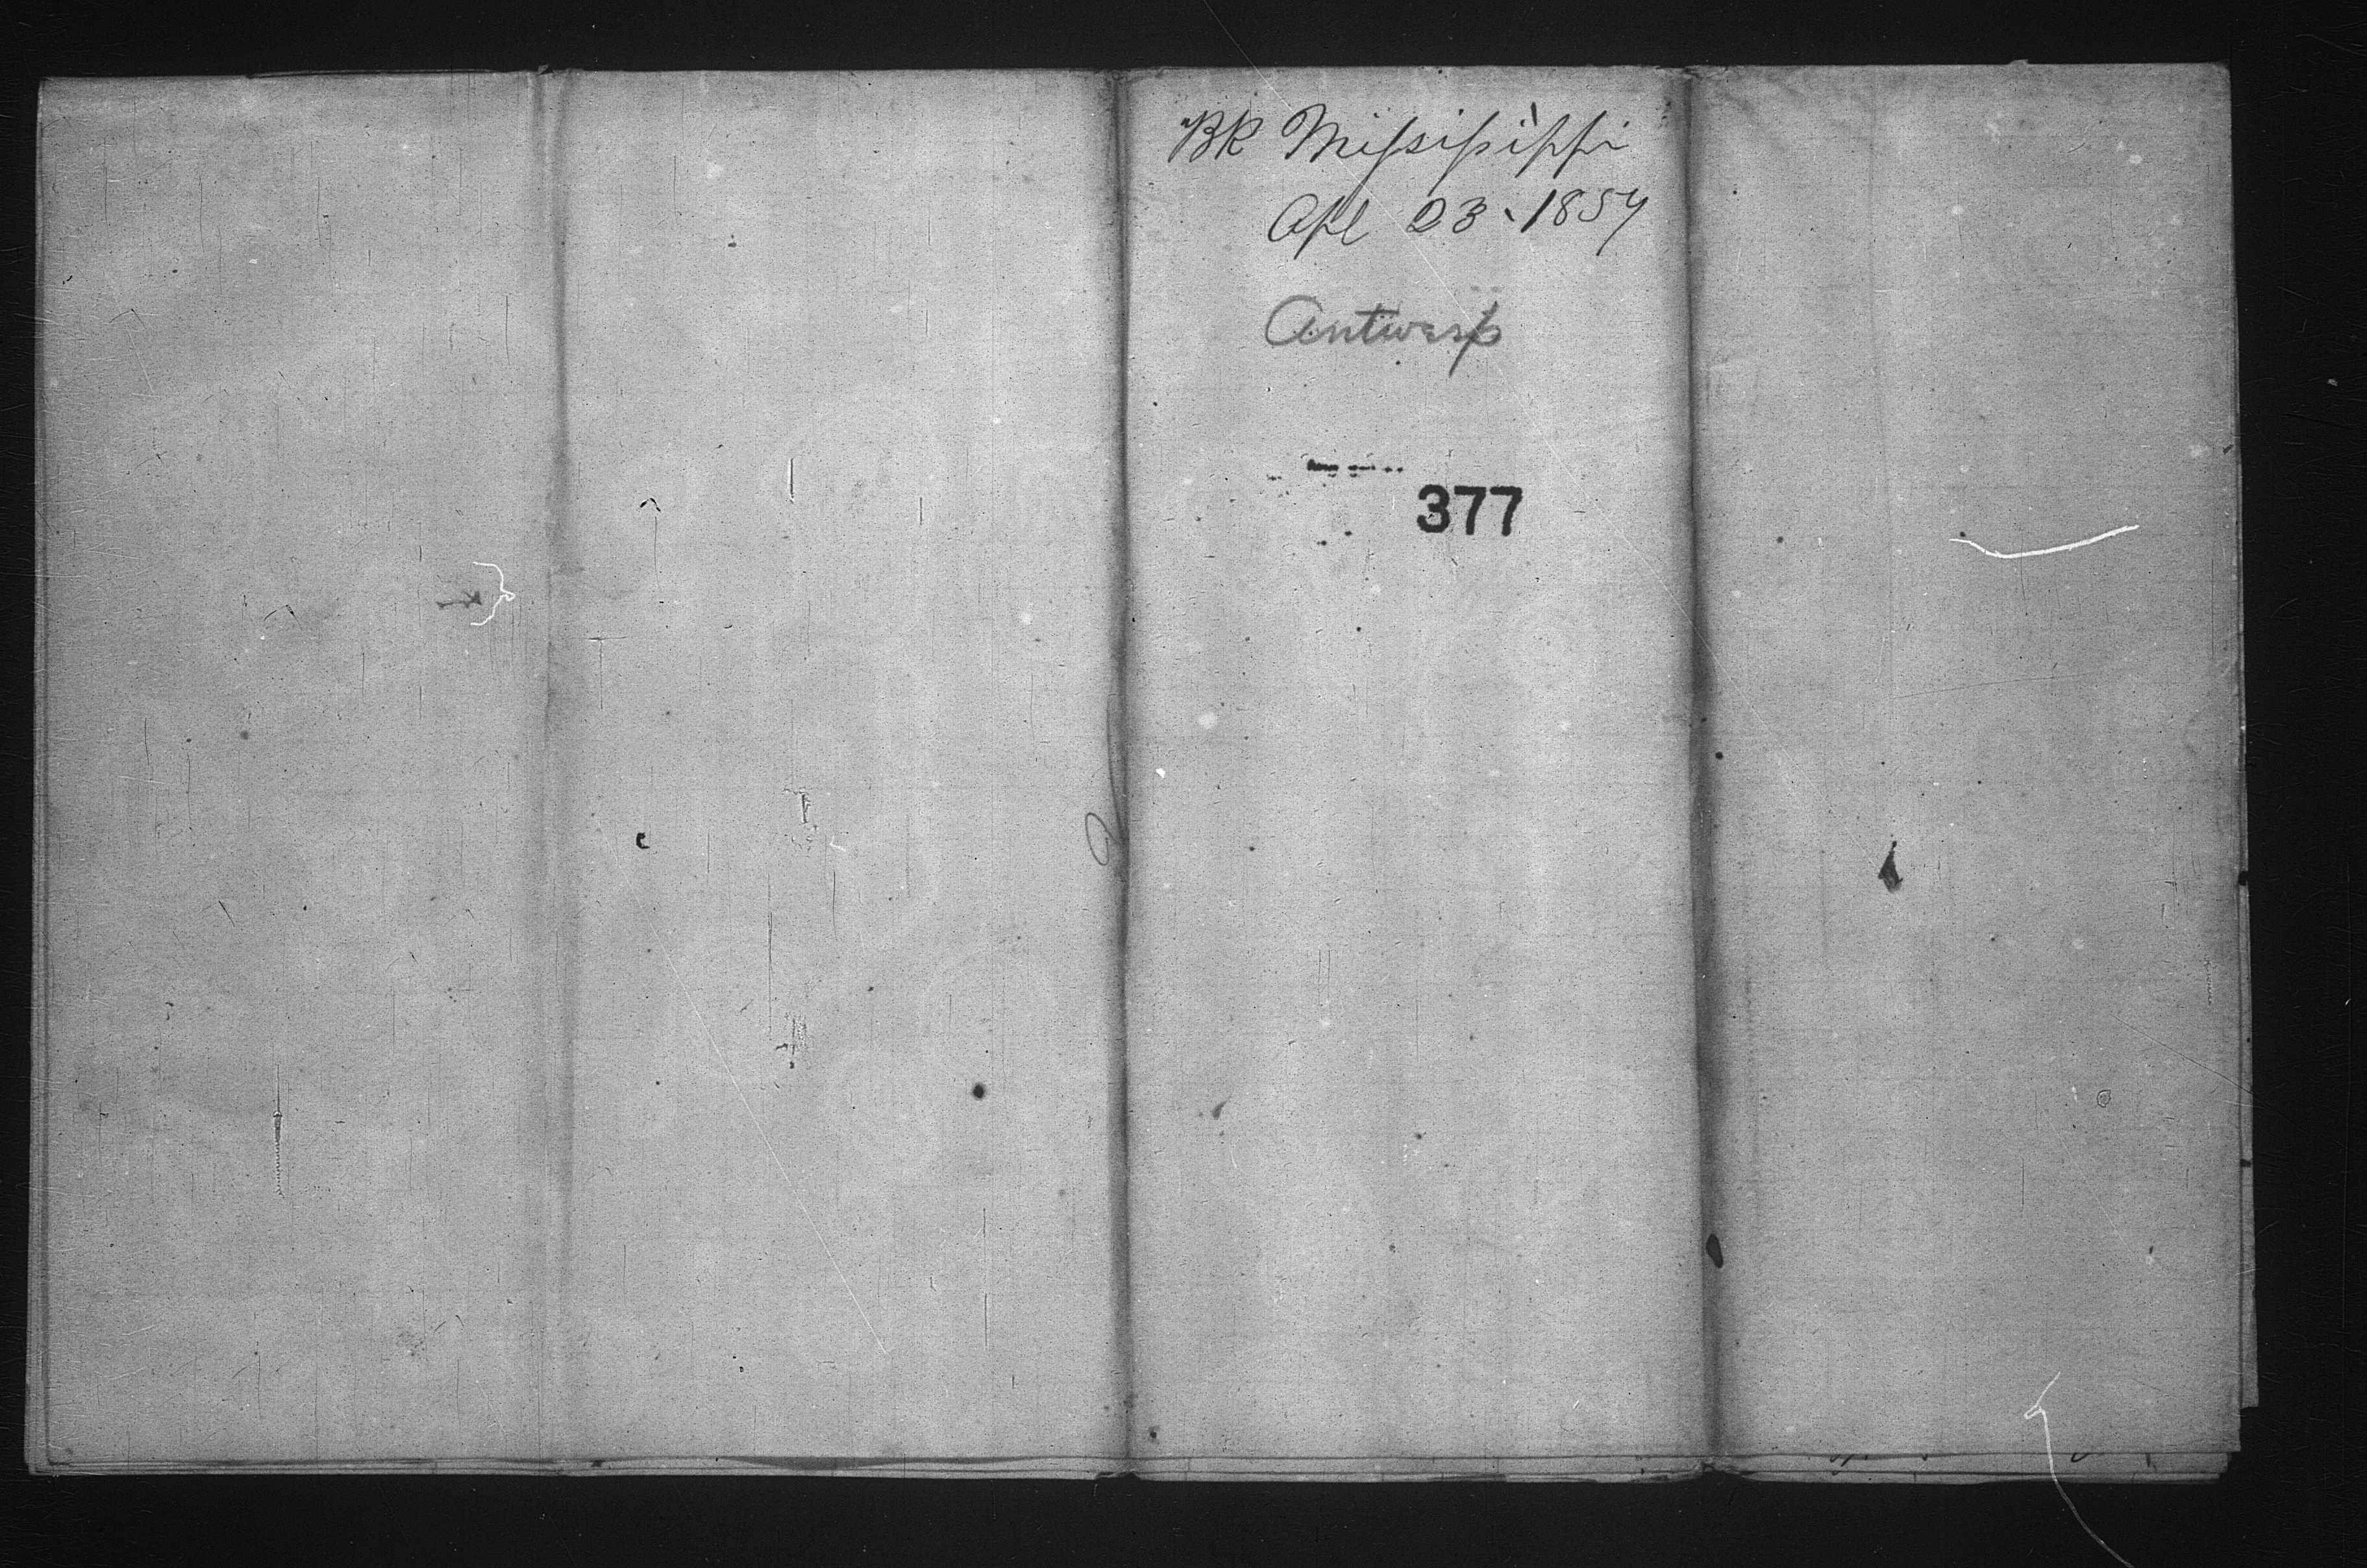 Bk Missisippi
Apl 23 - 1857
Antwerp
377